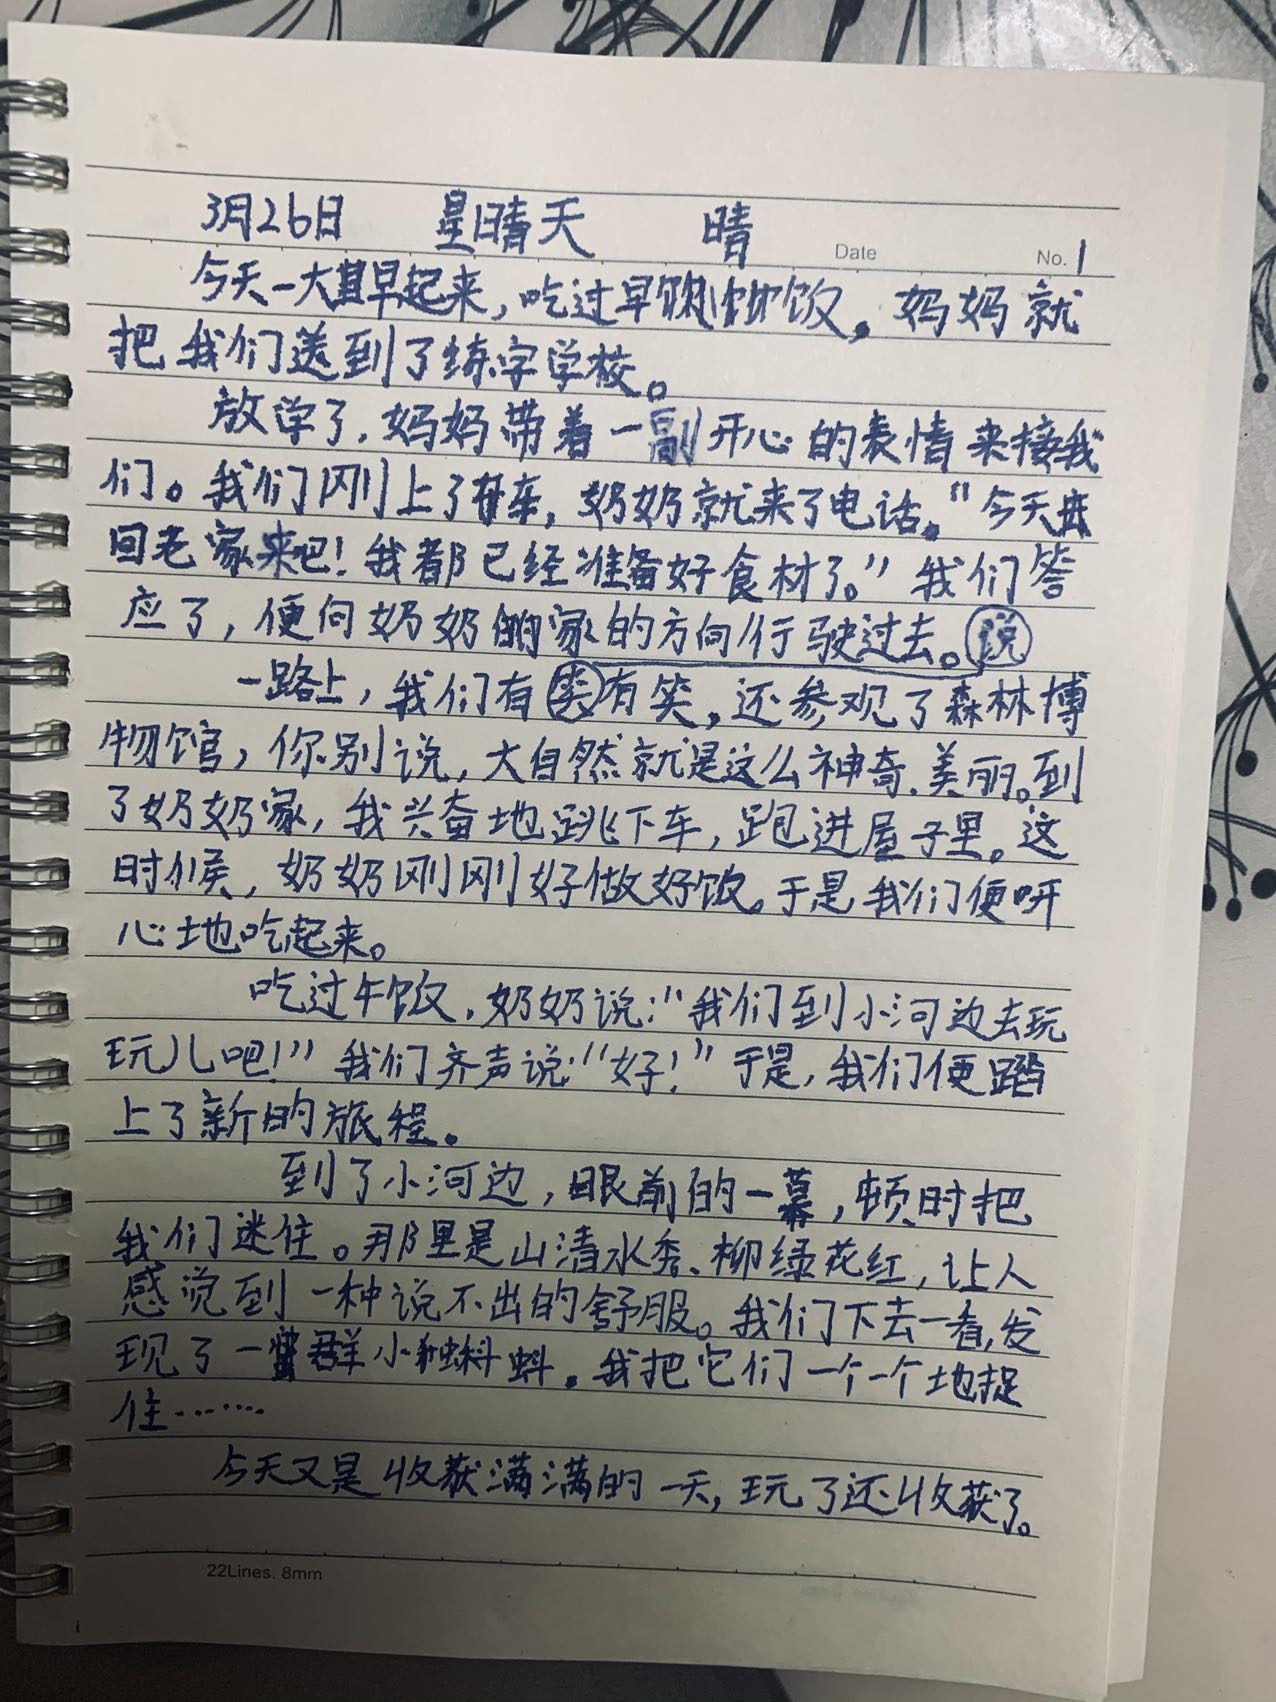 3月26日 星晴天 晴
Date No. 1
今天一大早起来，吃过早饭，妈妈就
把我们送到了练字学校。
放学了，妈妈带着一副开心的表情来接我
们。我们刚上了车，奶奶就来了电话。“今天
回老家来吧！我都已经准备好食材了。”我们答
应了，便向奶奶家的方向行驶过去。说
一路上，我们有有笑，还参观了森林博
物馆，你别说，大自然就是这么神奇、美丽。到
了奶奶家，我兴奋地跳下车，跑进屋子里。这
时候，奶奶刚刚好做好饭。于是我们便开
心地吃起来。
吃过午饭，奶奶说：“我们到小河边去玩
玩儿吧！”我们齐声说：“好！”于是，我们便踏
上了新的旅程。
到了小河边，眼前的一幕，顿时把
我们迷住。那里是山清水秀、柳绿花红，让人
感说到一种说不出的舒服。我们下去一看，发
现了一群小蝌蚪。我把它们一个一个地捉
住……
今天又是收获满满的一天，玩了还收获了。
22Lines. 8mm